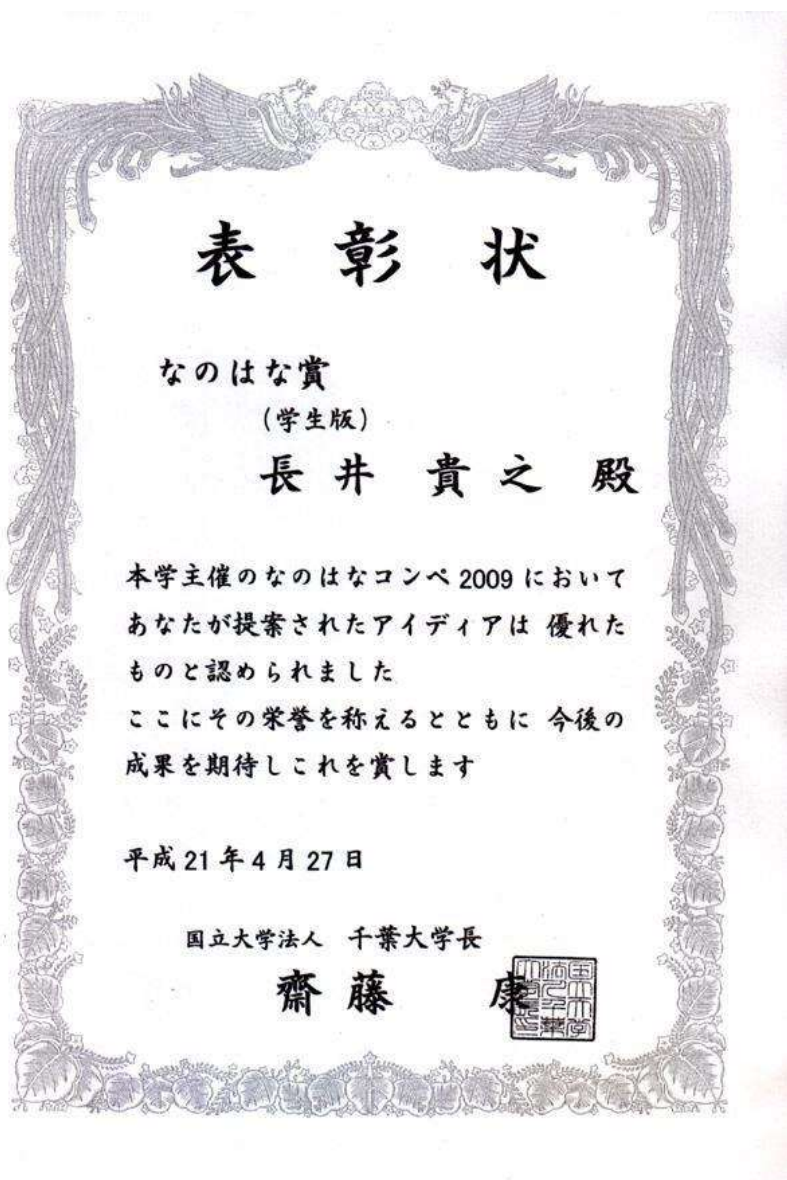 表彰状
なのはな賞
(学生版)
長井 貴之 殿
本学主催のなのはなコンペ2009において
あなたが提案されたアイディアは 優れた
ものと認められました
ここにその栄誉を称えるとともに 今後の
成果を期待しこれを賞します
平成21年4月27日
国立大学法人 千葉大学長
齋藤 康